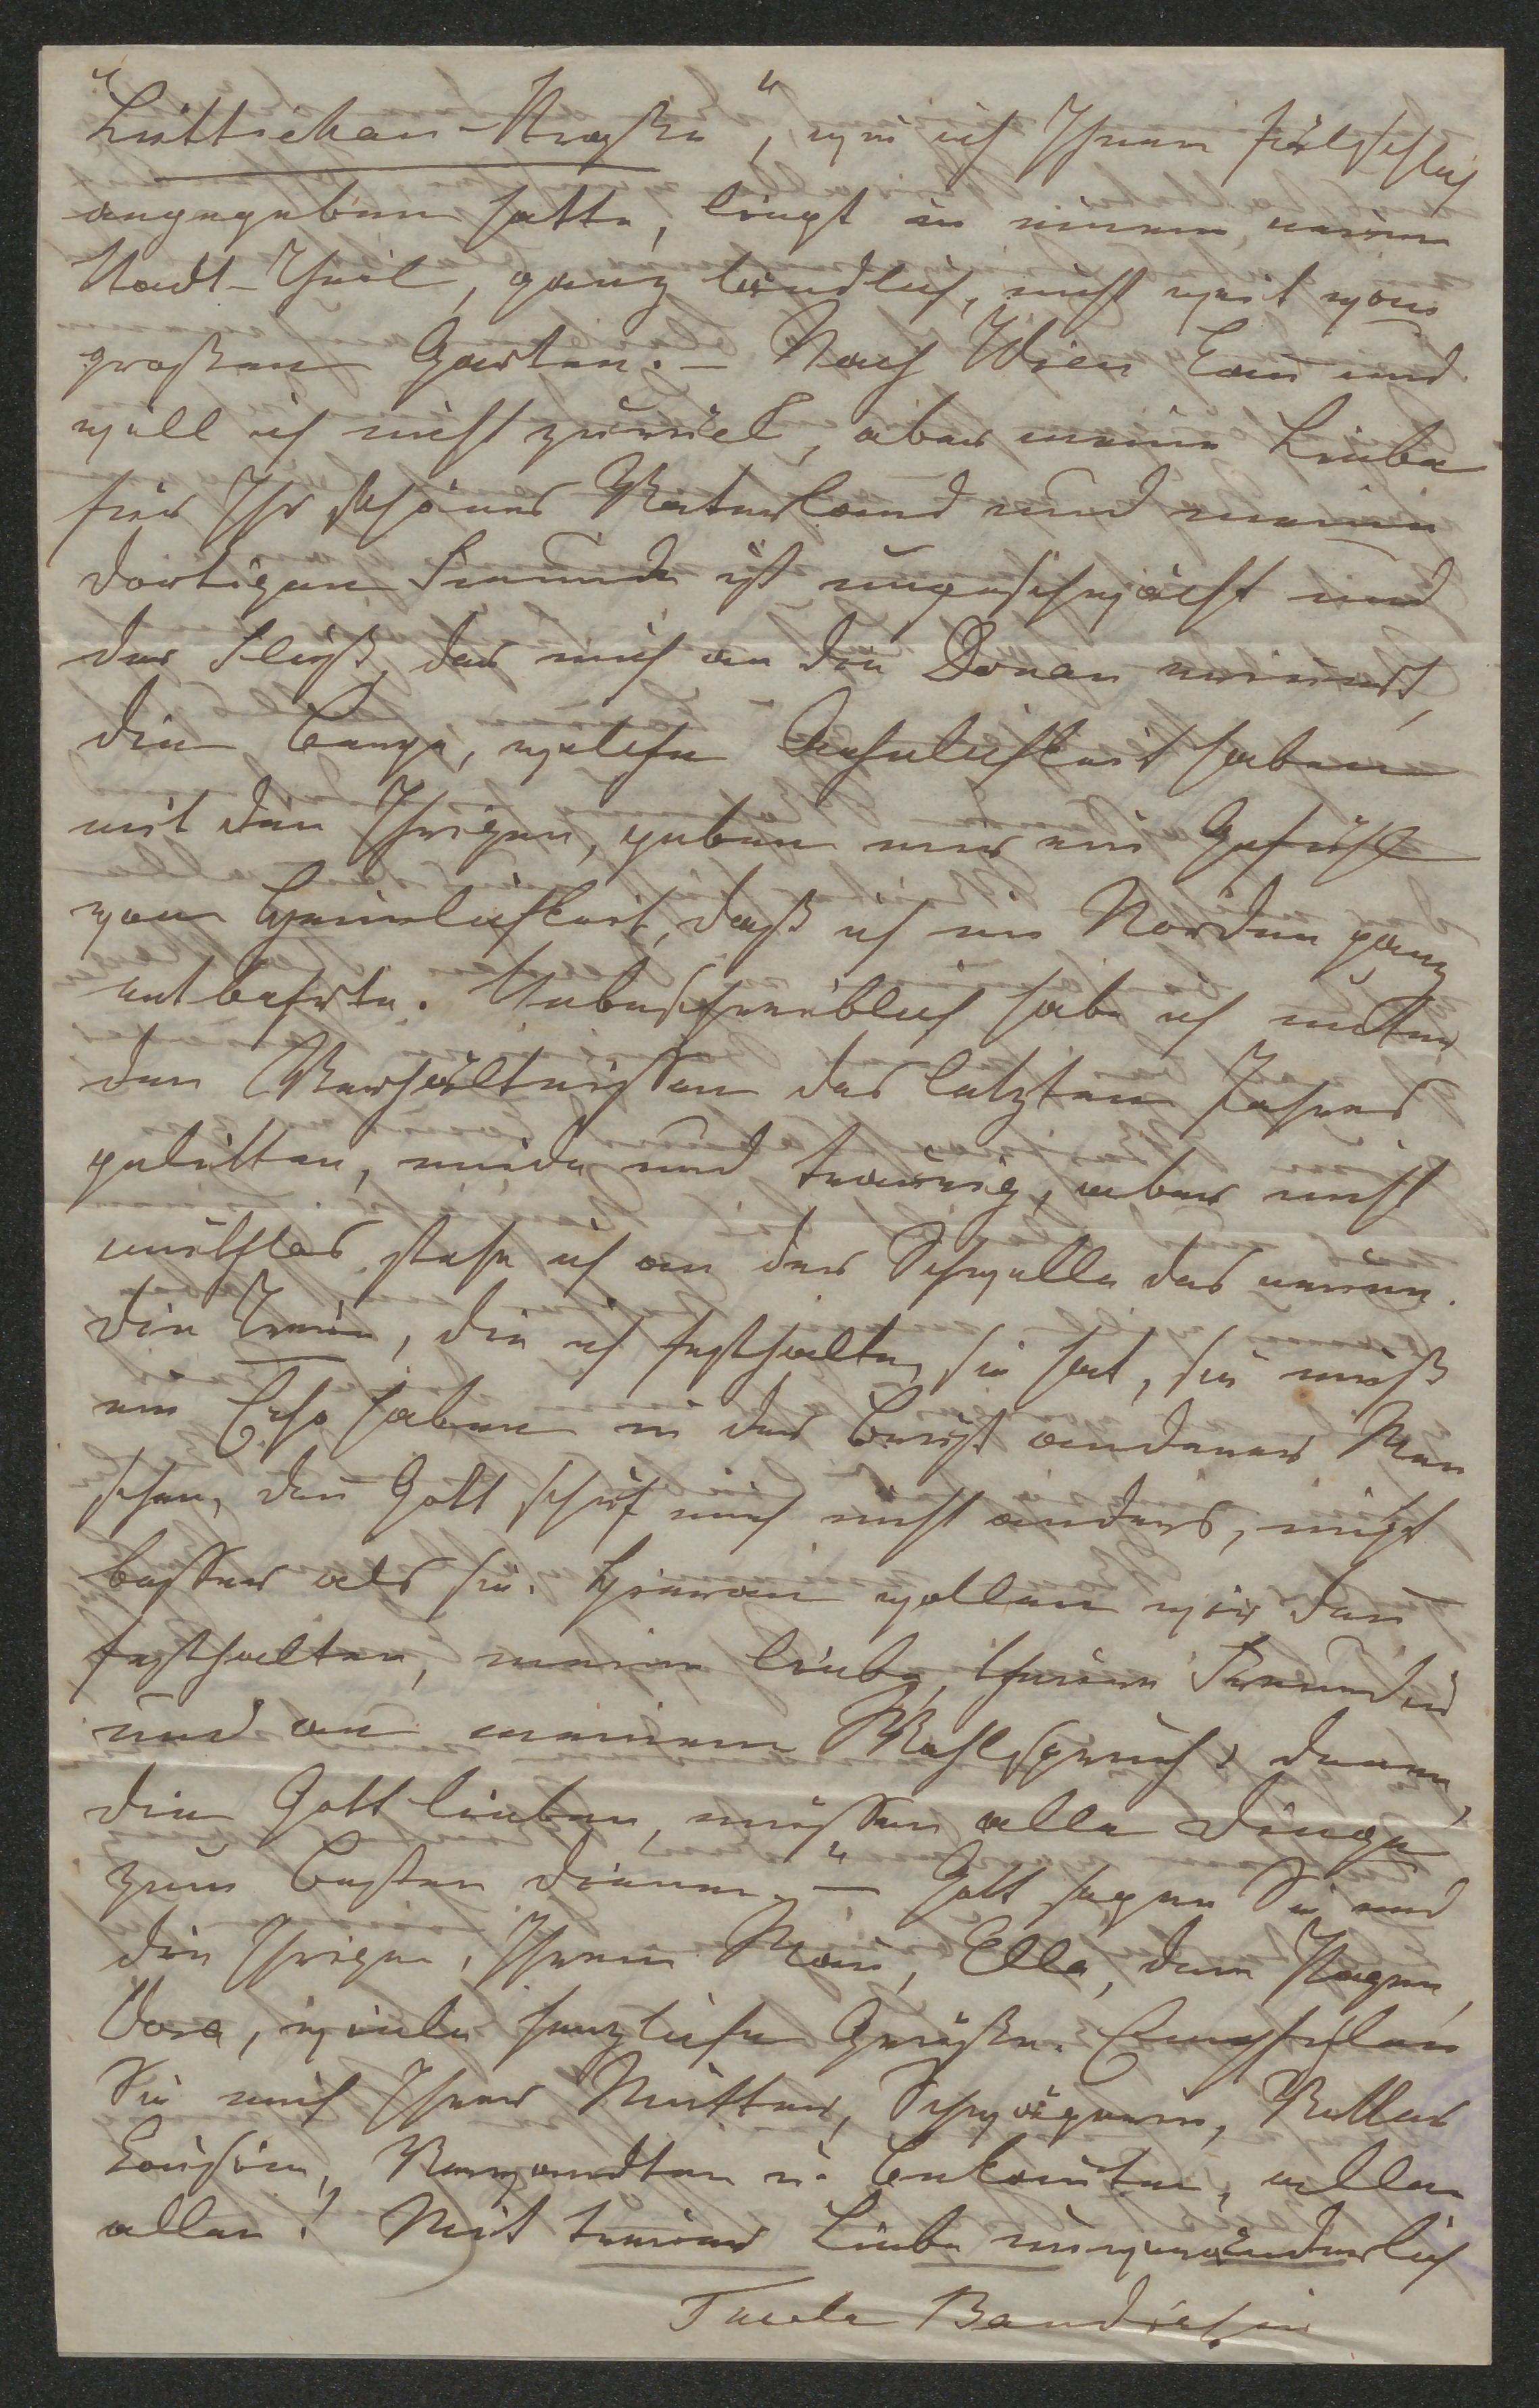 Lüttichau-Straße“, wie ich Ihnen fälschlich
angegeben hatte, liegt in einem neuen
Stadt-Theil, ganz ländlich, nicht weit vom
großen Garten. – Nach Wien kañ und
will ich nicht zurück, aber meine Liebe
für Ihr schönes Vaterland und meine
dortigen Freunde ist ungeschwächt und
der Fluß, der mich an die Donau erinnert,
die Berge, welche Aehnlichkeit haben
mit den Ihrigen, geben mir ein Gefühl
von Heimlichkeit, daß ich im Norden ganz
entbehrte. Unbeschreiblich habe ich unter
den Verhältnissen des letzten Jahres
gelitten, müde und traurig, aber nicht
muthlos stehe ich an der Schwelle des neuen.
Die Treue, die ich festhalte, sie hat, sie muß
ein Echo haben in der Brust anderer Men
schen, deñ Gott schuf mich nicht anders, nicht
besser als sie. Hieran wollen wir deñ
festhalten, meine liebe, theure Freundin
und an meinem Wahlspruch: denen,
die Gott lieben, müssen alle Dinge
zum Besten dienen.“ – Gott segne Sie und
die Ihrigen, Ihrem Mañ, Ella, dem Pagen,
Dora, viele herzliche Grüße. Empfehlen
Sie mich Ihrer Mutter, Schwägerin, Vetter
Cousine, Verwandten u. Bekañten, allen
allen! Mit treuer Liebe unveränderlich
Thecla Baudissin